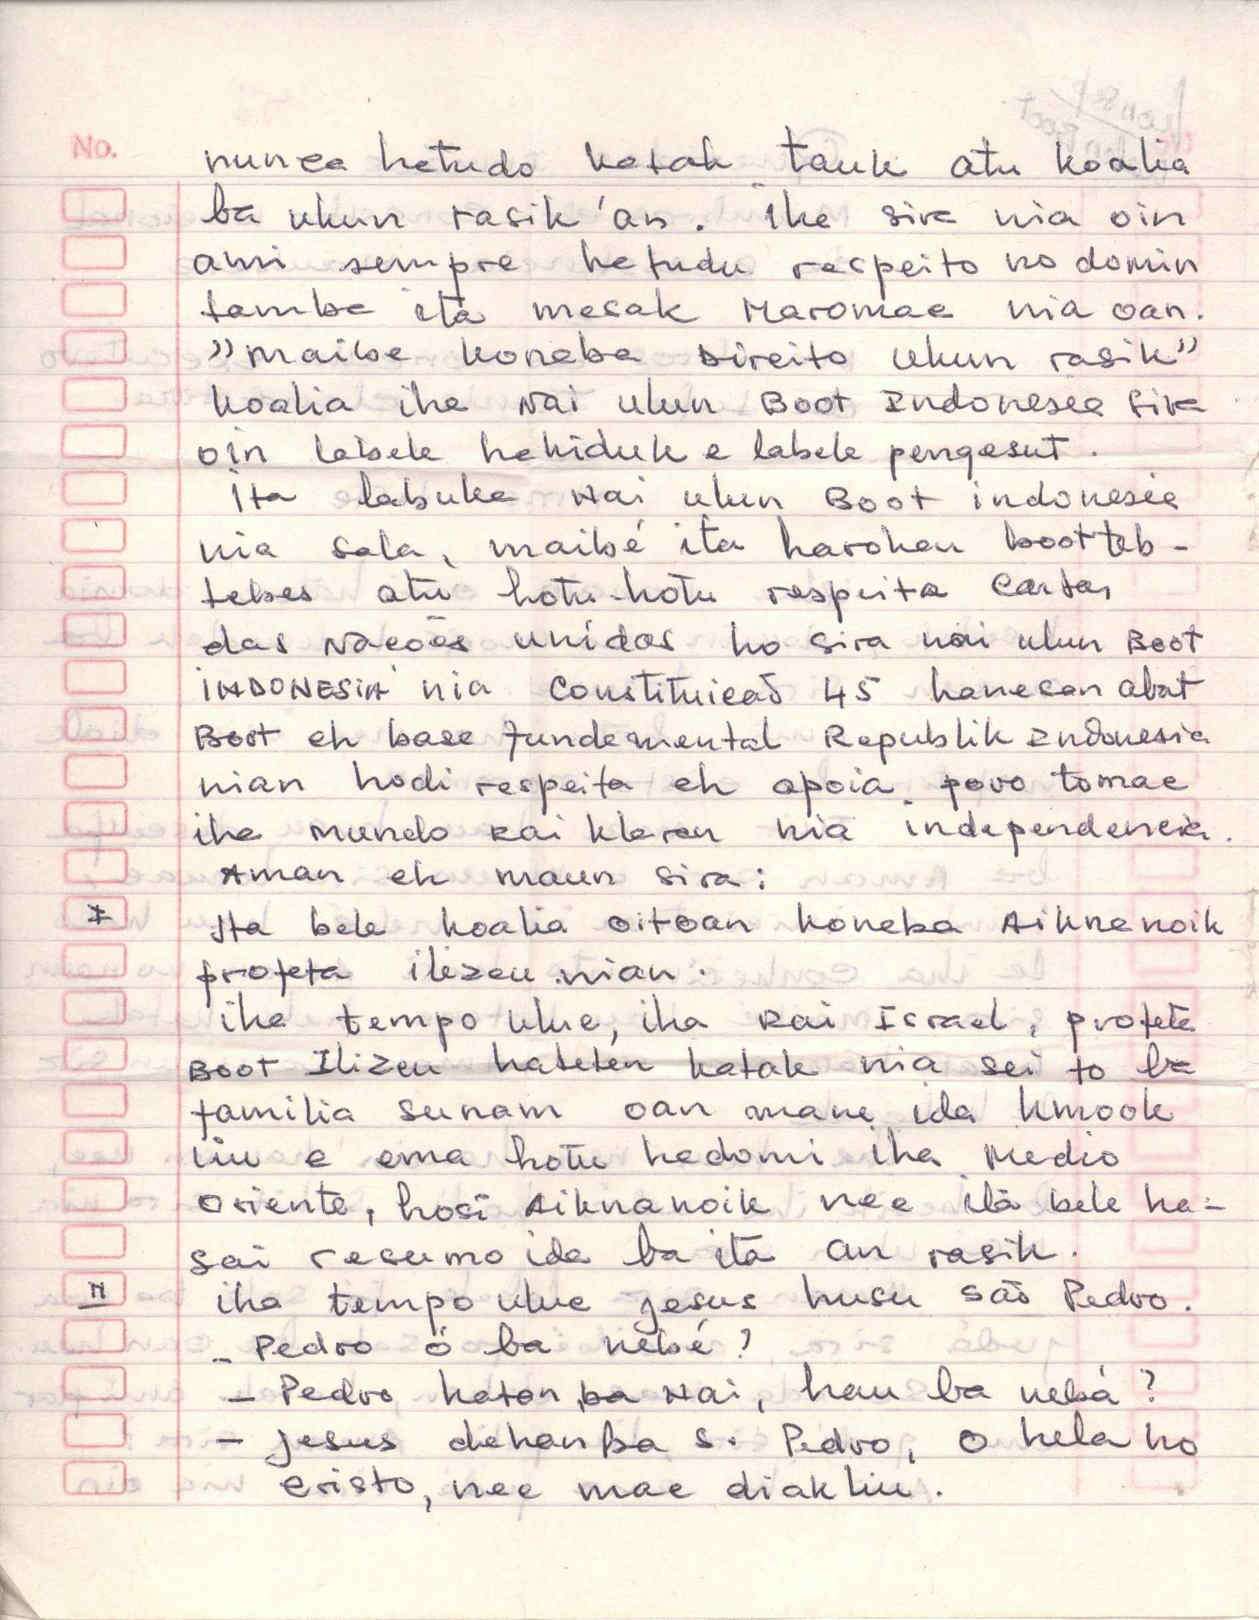 No.
nunca hetudo katak tauk atu koalia
ba ukun rasik'an. Iha sira nia oin
ami sempre hetudu respeito no domin
tamba ita mesak Maromac nia oan.
"maibe koneba Direito ukun rasik"
koalia iha Nai ulun Boot Indonesia sira
oin labele hakiduk e labele pengasut.
Ita labuka Nai ulun Boot indonesia
nia sala, maibé ita harohan boot teb-
tebes atu hotu-hotu respeita Cartas
das Nacões unidas ho sira nai ulun Boot
INDONESIA nia Constituicaõ 45 hanesan abat
Boot eh base fundamental Republik Indonesia
nian hodi respeita eh apoia povo tomac
iha mundo rai klaran nia independencia.
Aman eh maun sira:
I Ita bele koalia oitoan koneba Aiknanoik
profeta ilizeu nian.
iha tempo uluc, iha Rai Israel, profeta
Boot Ilizeu hateten katak nia sei to ba
familia sunam oan mane ida kmook
liu e ema hotu hadomi iha Medio
Oriente, hosi Aiknanoik nee ita bele ha-
sai resumo ida ba ita an rasik.
II iha tempo uluc Jesus husu saõ Pedro.
- Pedro ó ba nebé?
- Pedro hatan ba Nai, hau ba nebá?
- Jesus dehan ba S. Pedro, o hela ho
Cristo, nee mac diak liu.